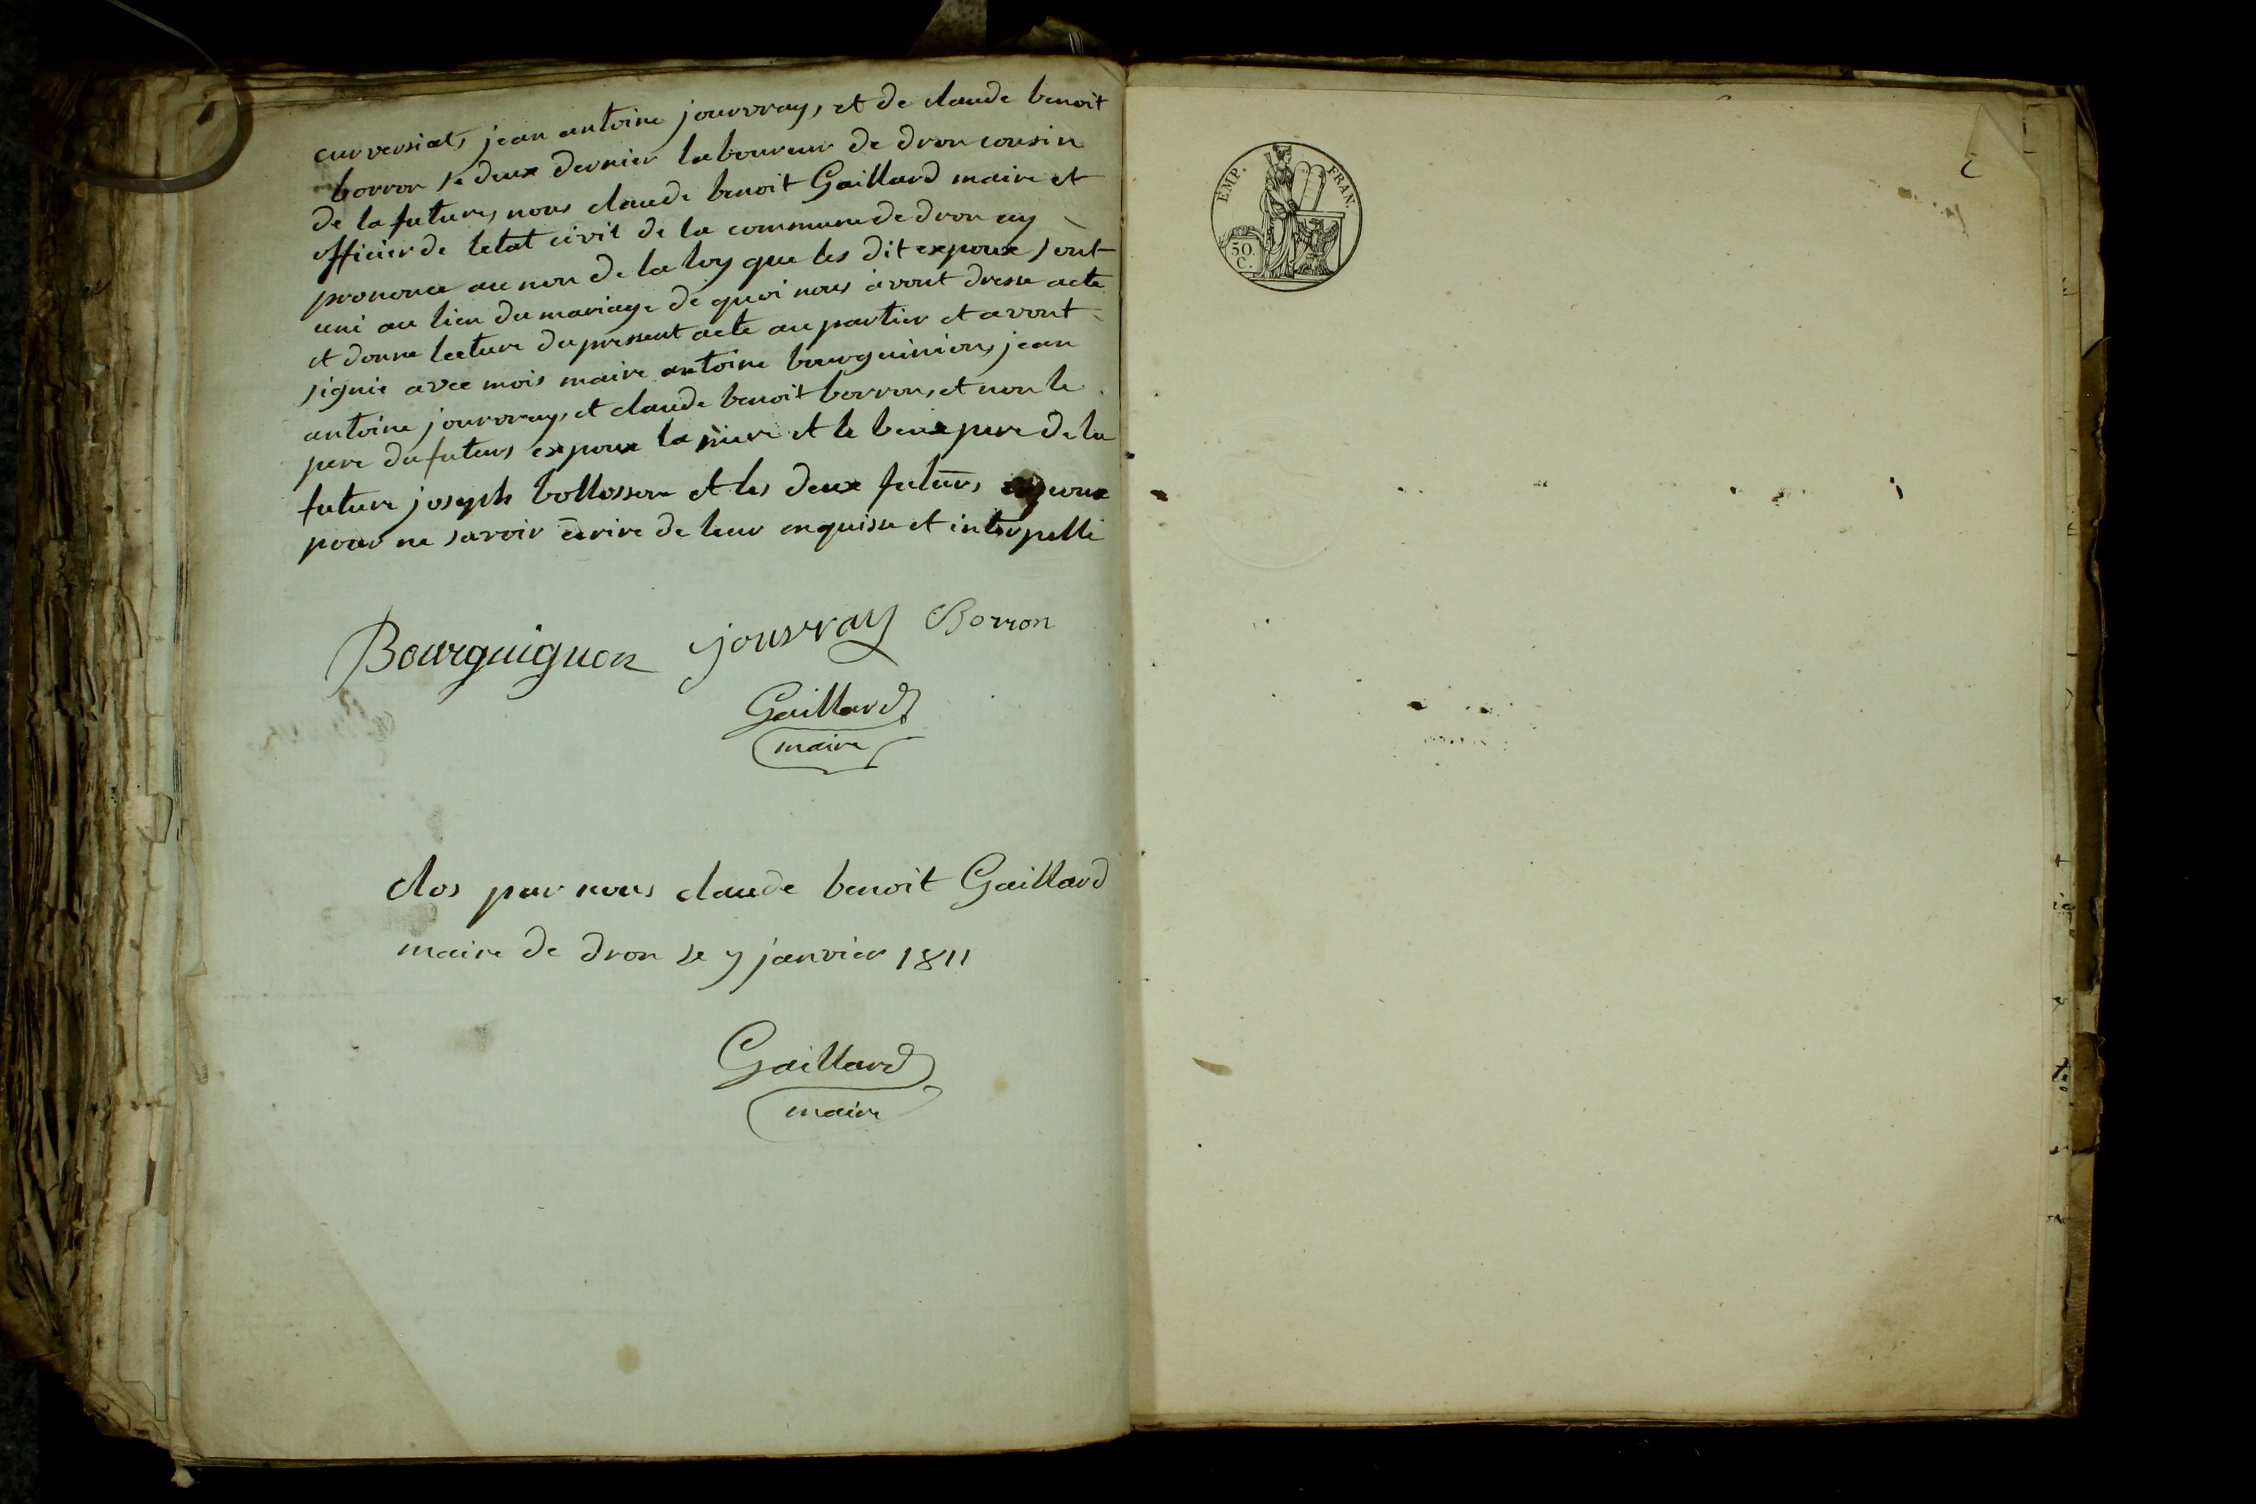 curversiat, jean antoine jouvray, et de claude benoit
borron se deux dernier laboureur de dron cousin
de la future, nous claude benoit Gaillard maire et
officier de letat civil de la commune de dron ay
prononce au non de la loy que les dit expoux sont
uni au lien du mariage de quoi nous avont dresse acte
et donne lecture du present acte au partier et avont
signie avec mois maire antoine bourguinion, jean
antoine jouvray, et claude benoit borron, et non le
pere du futeur expoux la mere et le beux pere de la
future joseph bollosson et les deux futurs expoux
pour ne savoir ecrire de leur enquisu et interpelle
Bourguignon jouvray Borron
Gaillard
maire
clos par nous claude benoit Gaillard
maire de dron le 7 janvier 1811
Gaillard
maire
EMP. FRAN.
50
C.